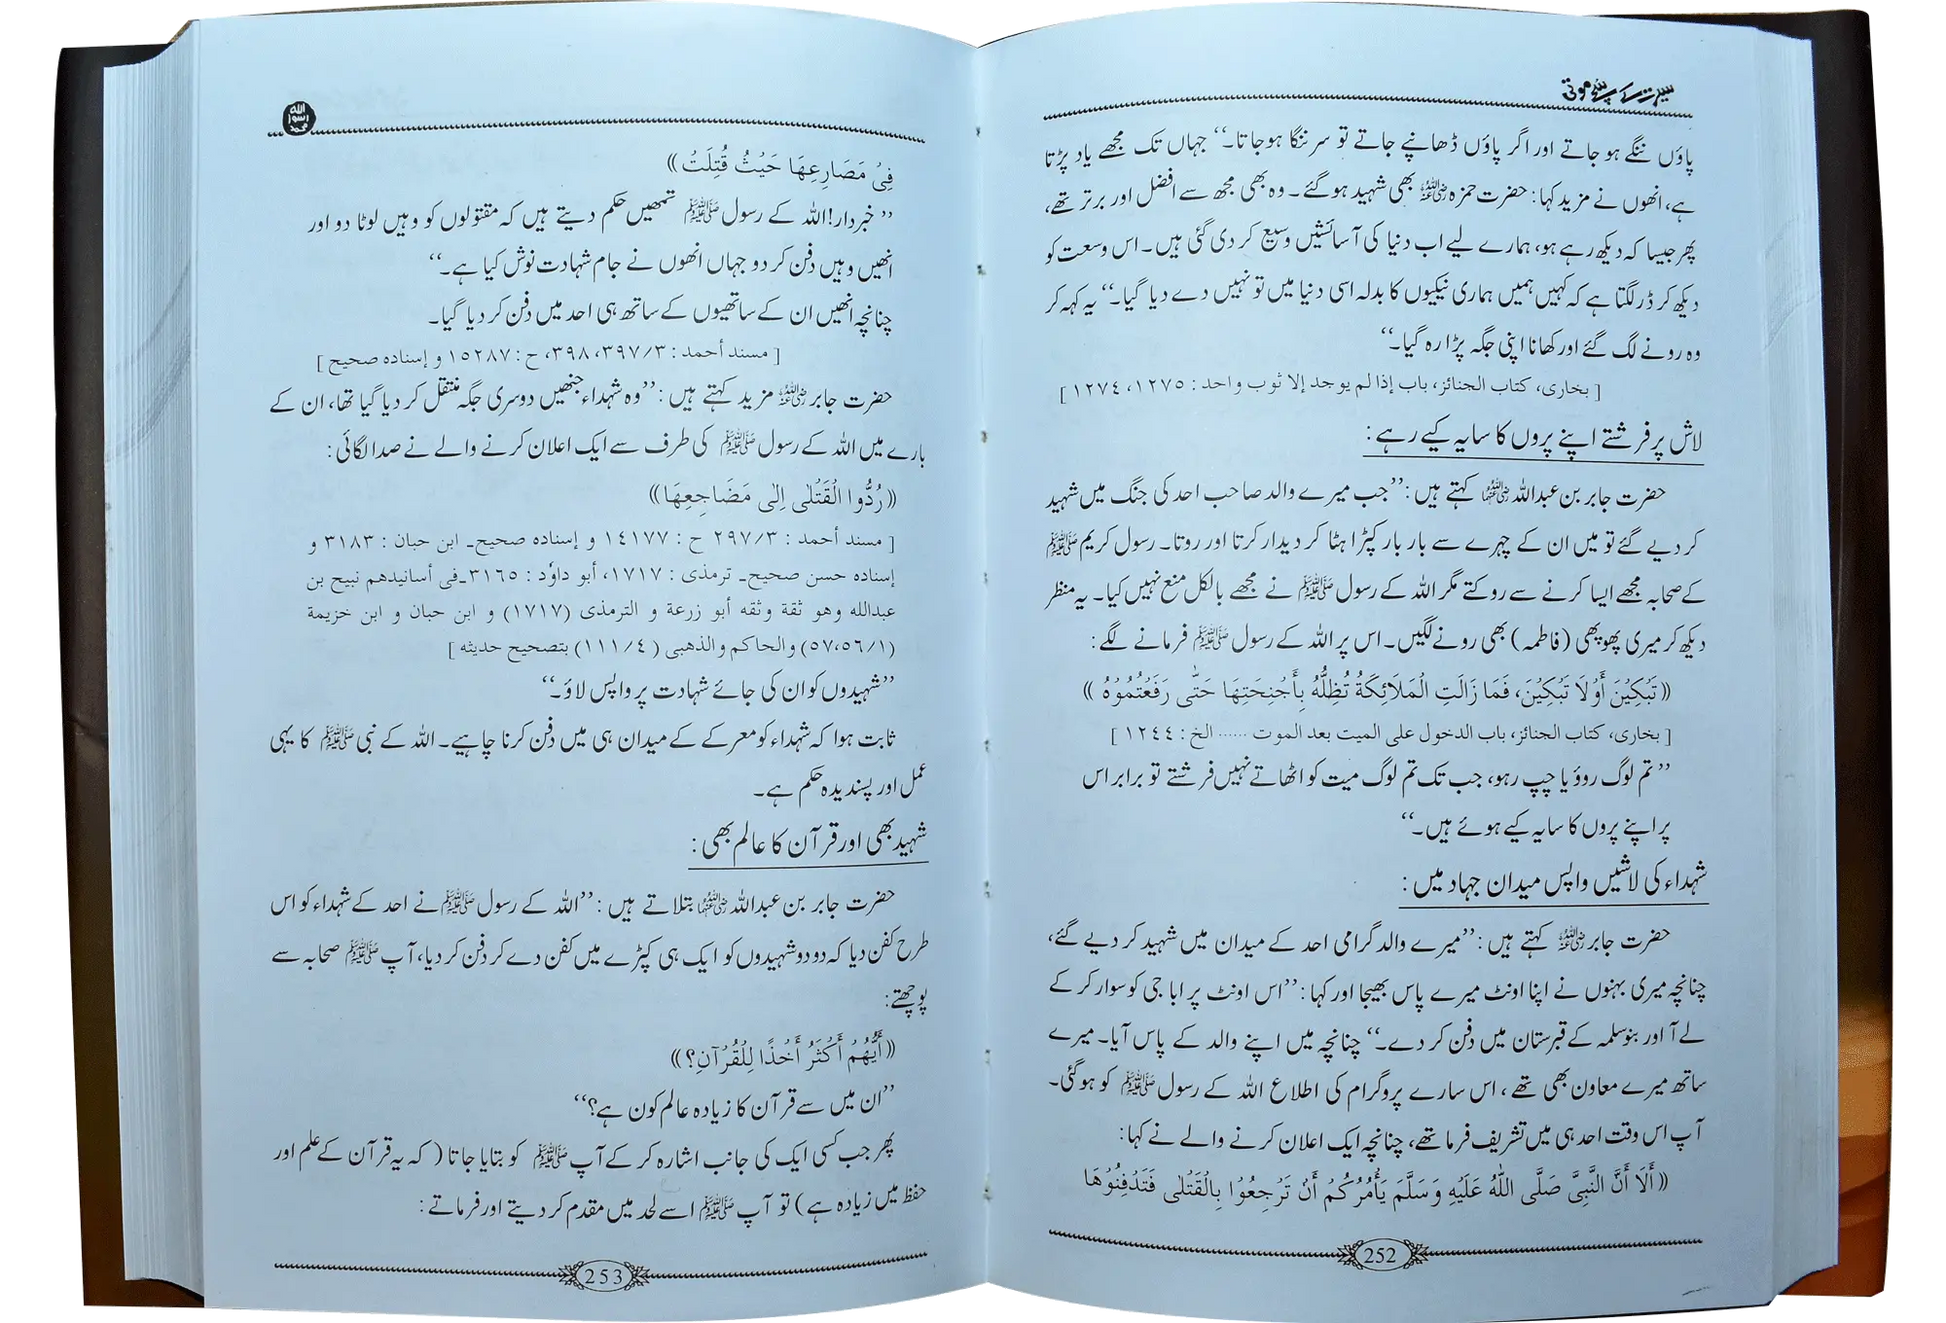 سیرت کے سچے موتی
پاؤں ننگے ہو جاتے اور اگر پاؤں ڈھانپے جاتے تو سر ننگا ہو جاتا۔‘‘ جہاں تک مجھے یاد پڑتا
ہے، انھوں نے مزید کہا: حضرت حمزہ رضی اللہ عنہ بھی شہید ہو گئے۔ وہ بھی مجھ سے افضل اور برتر تھے،
پھر جیسا کہ دیکھ رہے ہو، ہمارے لیے اب دنیا کی آسائشیں وسیع کر دی گئی ہیں۔ اس وسعت کو
دیکھ کر ڈر لگتا ہے کہ کہیں ہمیں ہماری نیکیوں کا بدلہ اسی دنیا میں تو نہیں دے دیا گیا۔‘‘ یہ کہہ کر
وہ رونے لگ گئے اور کھانا اپنی جگہ پڑا رہ گیا۔‘‘
[ بخاری، کتاب الجنائز، باب إذا لم یوجد إلا ثوب واحد : ١٢٧٥، ١٢٧٤ ]
لاش پر فرشتے اپنے پروں کا سایہ کیے رہے:
حضرت جابر بن عبداللہ رضی اللہ عنہما کہتے ہیں: ’’جب میرے والد صاحب احد کی جنگ میں شہید
کر دیے گئے تو میں ان کے چہرے سے بار بار کپڑا ہٹا کر دیدار کرتا اور روتا۔ رسول کریم ﷺ
کے صحابہ مجھے ایسا کرنے سے روکتے مگر اللہ کے رسول ﷺ نے مجھے بالکل منع نہیں کیا۔ یہ منظر
دیکھ کر میری پھوپھی (فاطمہ) بھی رونے لگیں۔ اس پر اللہ کے رسول ﷺ فرمانے لگے:
« تَبْكِيْنَ أَوْ لَا تَبْكِيْنَ، فَمَا زَالَتِ الْمَلَائِكَةُ تُظِلُّهُ بِأَجْنِحَتِهَا حَتّٰى رَفَعْتُمُوْهُ »
[ بخاری، کتاب الجنائز، باب الدخول علی المیت بعد الموت ...... الخ : ١٢٤٤ ]
’’تم لوگ روؤ یا چپ رہو، جب تک تم لوگ میت کو اٹھاتے نہیں فرشتے تو برابر اس
پر اپنے پروں کا سایہ کیے ہوئے ہیں۔‘‘
شہداء کی لاشیں واپس میدان جہاد میں:
حضرت جابر رضی اللہ عنہ کہتے ہیں: ’’میرے والد گرامی احد کے میدان میں شہید کر دیے گئے،
چنانچہ میری بہنوں نے اپنا اونٹ میرے پاس بھیجا اور کہا: ’’اس اونٹ پر ابا جی کو سوار کر کے
لے آ اور بنو سلمہ کے قبرستان میں دفن کر دے۔‘‘ چنانچہ میں اپنے والد کے پاس آیا۔ میرے
ساتھ میرے معاون بھی تھے، اس سارے پروگرام کی اطلاع اللہ کے رسول ﷺ کو ہو گئی۔
آپ اس وقت احد ہی میں تشریف فرما تھے، چنانچہ ایک اعلان کرنے والے نے کہا:
« أَلَا أَنَّ النَّبِيَّ صَلَّى اللّٰهُ عَلَيْهِ وَسَلَّمَ يَأْمُرُكُمْ أَنْ تَرْجِعُوْا بِالْقَتْلٰى فَتَدْفِنُوْهَا
252
اللہ رسول محمد
فِيْ مَصَارِعِهَا حَيْثُ قُتِلَتْ »
’’خبردار! اللہ کے رسول ﷺ تمھیں حکم دیتے ہیں کہ مقتولوں کو وہیں لوٹا دو اور
انھیں وہیں دفن کر دو جہاں انھوں نے جام شہادت نوش کیا ہے۔‘‘
چنانچہ انھیں ان کے ساتھیوں کے ساتھ ہی احد میں دفن کر دیا گیا۔
[ مسند أحمد : ٣٩٧/٣، ٣٩٨، ح : ١٥٢٨٧ و إسناده صحیح ]
حضرت جابر رضی اللہ عنہ مزید کہتے ہیں: ’’وہ شہداء جنھیں دوسری جگہ منتقل کر دیا گیا تھا، ان کے
بارے میں اللہ کے رسول ﷺ کی طرف سے ایک اعلان کرنے والے نے صدا لگائی:
« رُدُّوا الْقَتْلٰى اِلٰى مَضَاجِعِهَا »
[ مسند أحمد : ٢٩٧/٣ ح : ١٤١٧٧ و إسناده صحیح۔ ابن حبان : ٣١٨٣ و
إسناده حسن صحیح۔ ترمذی : ١٧١٧، أبو داوٗد : ٣١٦٥۔فی أسانیدهم نبیح بن
عبدالله وهو ثقة وثقه أبو زرعة و الترمذی (١٧١٧) و ابن حبان و ابن خزیمة
(٥٧،٥٦/١) والحاکم والذهبی (١١١/٤) بتصحیح حدیثه ]
’’شہیدوں کو ان کی جائے شہادت پر واپس لاؤ۔‘‘
ثابت ہوا کہ شہداء کو معرکے کے میدان ہی میں دفن کرنا چاہیے۔ اللہ کے نبی ﷺ کا یہی
عمل اور پسندیدہ حکم ہے۔
شہید بھی اور قرآن کا عالم بھی:
حضرت جابر بن عبداللہ رضی اللہ عنہما بتلاتے ہیں: ’’اللہ کے رسول ﷺ نے احد کے شہداء کو اس
طرح کفن دیا کہ دو دو شہیدوں کو ایک ہی کپڑے میں کفن دے کر دفن کر دیا، آپ ﷺ صحابہ سے
پوچھتے:
« أَيُّهُمْ أَكْثَرُ أَخْذًا لِلْقُرْآنِ؟ »
’’ان میں سے قرآن کا زیادہ عالم کون ہے؟‘‘
پھر جب کسی ایک کی جانب اشارہ کر کے آپ ﷺ کو بتایا جاتا (کہ یہ قرآن کے علم اور
حفظ میں زیادہ ہے) تو آپ ﷺ اسے لحد میں مقدم کر دیتے اور فرماتے:
253